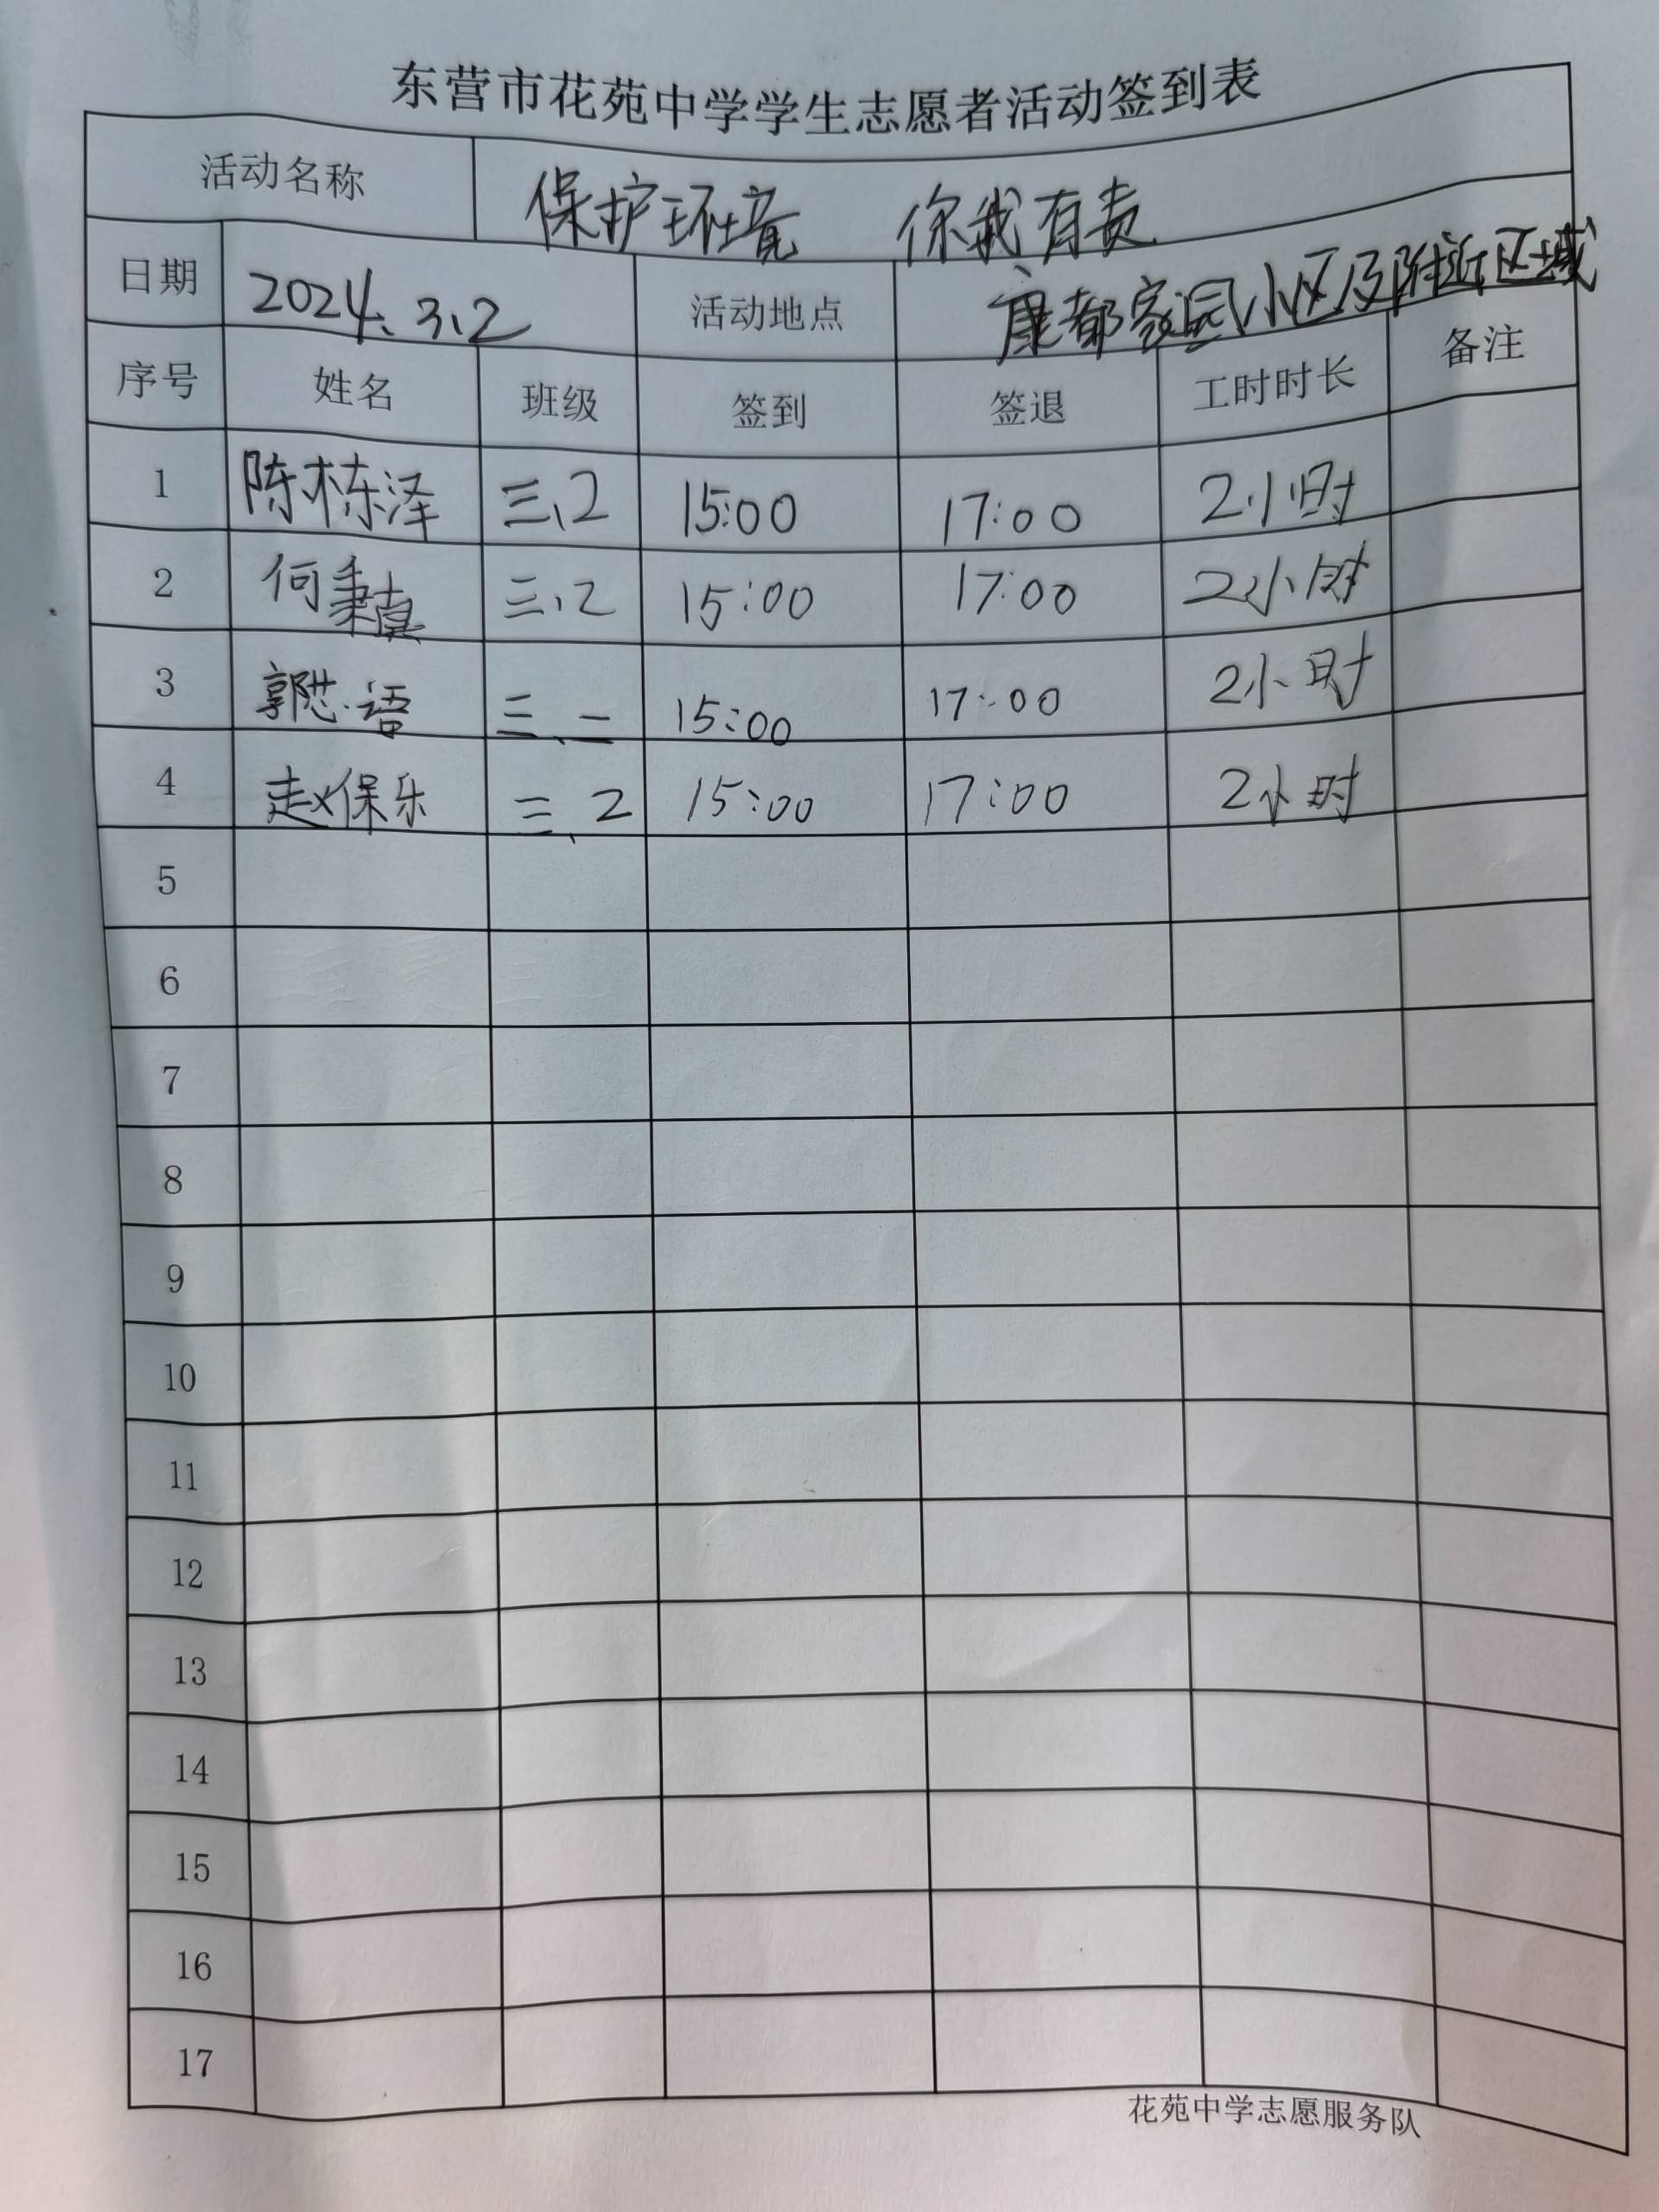 东营市花苑中学学生志愿者活动签到表
活动名称 保护环境 你我有责
日期 2024.3.2 活动地点 康都家园小区及附近区域
序号 姓名 班级 签到 签退 工时时长 备注
1 陈栋泽 三、2 15:00 17:00 2小时
2 何秉真 三、2 15:00 17:00 2小时
3 郭 语 三、一 15:00 17:00 2小时
4 赵保乐 三、2 15:00 17:00 2小时
5
6
7
8
9
10
11
12
13
14
15
16
17
花苑中学志愿服务队